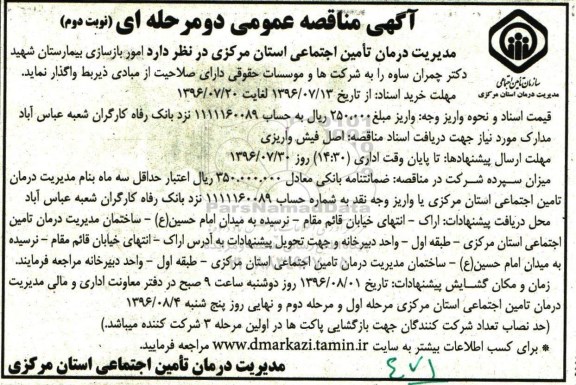 آگهی مناقصه عمومی دومرحله ای (نوبت دوم)
مدیریت درمان تأمین اجتماعی استان مرکزی در نظر دارد امور بازسازی بیمارستان شهید
دکتر چمران ساوه را به شرکت ها و موسسات حقوقی دارای صلاحیت از مبادی ذیربط واگذار نماید.
سازمان تأمین اجتماعی
مدیریت درمان استان مرکزی
مهلت خرید اسناد: از تاریخ ۱۳۹۶/۰۷/۱۳ لغایت ۱۳۹۶/۰۷/۲۰
قیمت اسناد و نحوه واریز وجه: واریز مبلغ ۲۵۰.۰۰۰ ریال به حساب ۱۱۱۱۱۶۰۰۸۹ نزد بانک رفاه کارگران شعبه عباس آباد
مدارک مورد نیاز جهت دریافت اسناد مناقصه: اصل فیش واریزی
مهلت ارسال پیشنهادها: تا پایان وقت اداری (۱۴:۳۰) روز ۱۳۹۶/۰۷/۳۰
میزان سپرده شرکت در مناقصه: ضمانتنامه بانکی معادل ۳۵۰.۰۰۰.۰۰۰ ریال اعتبار حداقل سه ماه بنام مدیریت درمان
تامین اجتماعی استان مرکزی یا واریز وجه نقد به شماره حساب ۱۱۱۱۱۶۰۰۸۹ نزد بانک رفاه کارگران شعبه عباس آباد
محل دریافت پیشنهادات: اراک - انتهای خیابان قائم مقام - نرسیده به میدان امام حسین(ع) - ساختمان مدیریت درمان تامین
اجتماعی استان مرکزی - طبقه اول - واحد دبیرخانه و جهت تحویل پیشنهادات به آدرس اراک - انتهای خیابان قائم مقام - نرسیده
به میدان امام حسین(ع) - ساختمان مدیریت درمان تامین اجتماعی استان مرکزی - طبقه اول - واحد دبیرخانه مراجعه فرمایند.
زمان و مکان گشایش پیشنهادات: تاریخ ۱۳۹۶/۰۸/۰۱ روز دوشنبه ساعت ۹ صبح در دفتر معاونت اداری و مالی مدیریت
درمان تامین اجتماعی استان مرکزی مرحله اول و مرحله دوم و نهایی روز پنج شنبه ۱۳۹۶/۰۸/۴
(حد نصاب تعداد شرکت کنندگان جهت بازگشایی پاکت ها در اولین مرحله ۳ شرکت کننده میباشد.)
* برای کسب اطلاعات بیشتر به سایت www.dmarkazi.tamin.ir مراجعه فرمایید.
مدیریت درمان تأمین اجتماعی استان مرکزی
ParsNamadData